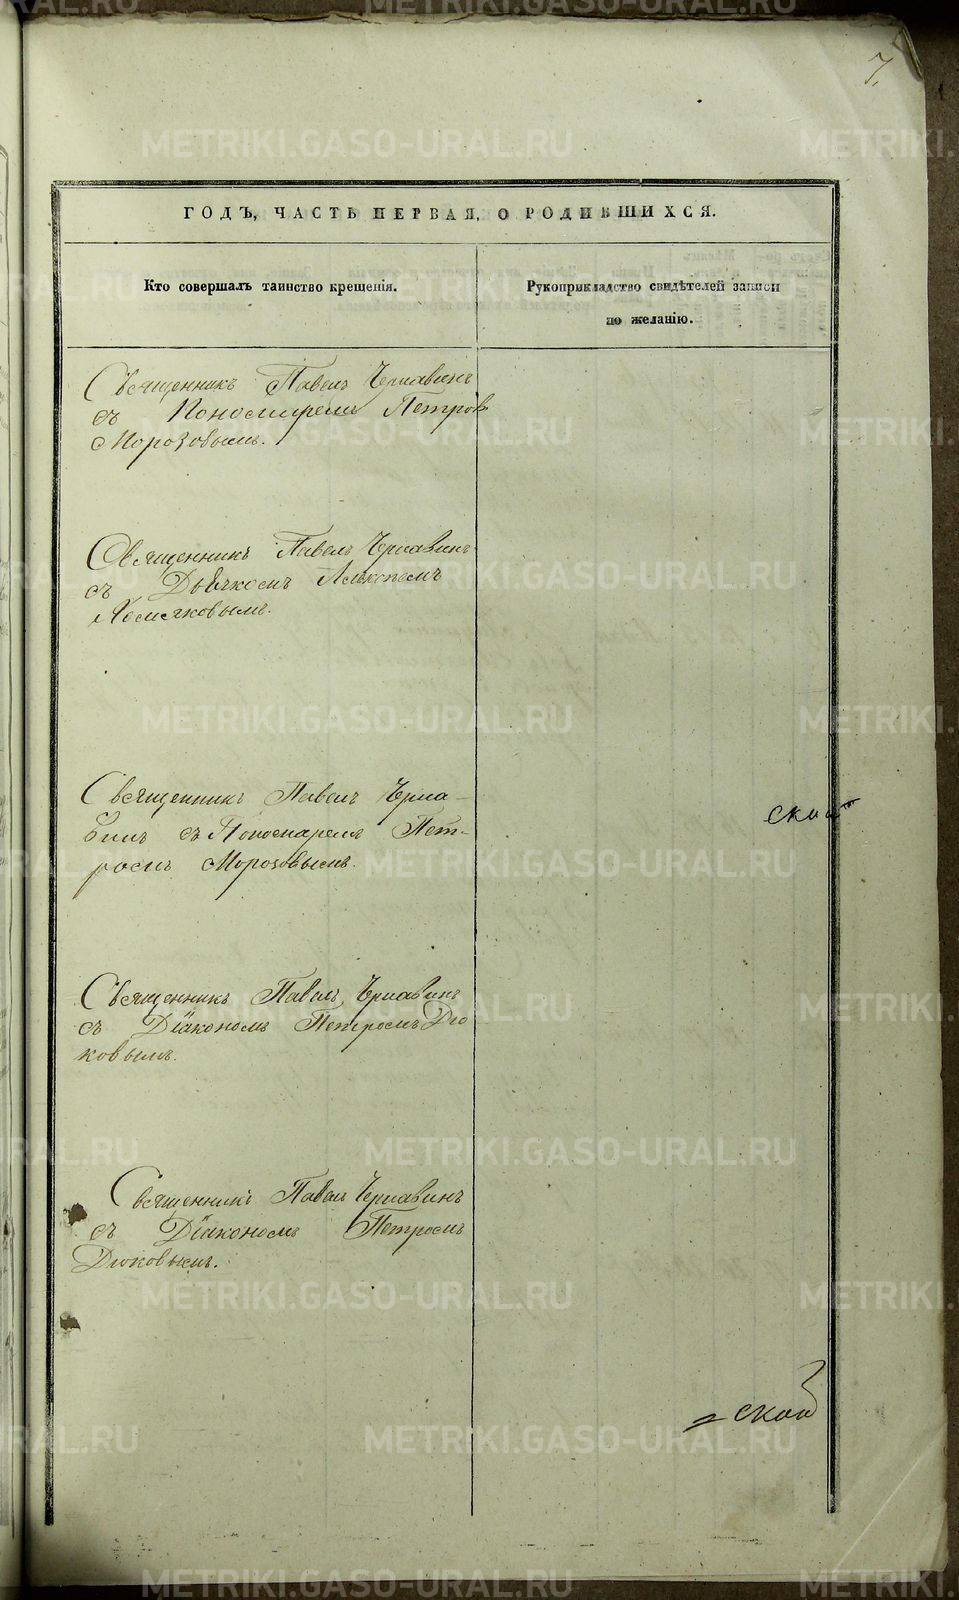 7.
ГОДЪ, ЧАСТЬ ПЕРВАЯ, О РОДИВШИХСЯ.
Кто совершалъ таинство крещенія.
Рукоприкладство свидѣтелей записи
по желанію.
Священникъ Павелъ Чернавинъ
съ Пономаремъ Петров
Морозовымъ.
Священникъ Павелъ Чернавинъ
съ Дьячкомъ
Хомяковымъ.
Священникъ Павелъ Черна-
винъ съ Пономаремъ Пет-
ромъ Морозовымъ.
Священникъ Павелъ Чернавинъ
съ Діакономъ Петромъ Дю
ковымъ.
Священникъ Павелъ Чернавинъ
съ Діакономъ Петромъ
Дюковымъ.
ской
METRIKI.GASO-URAL.RU